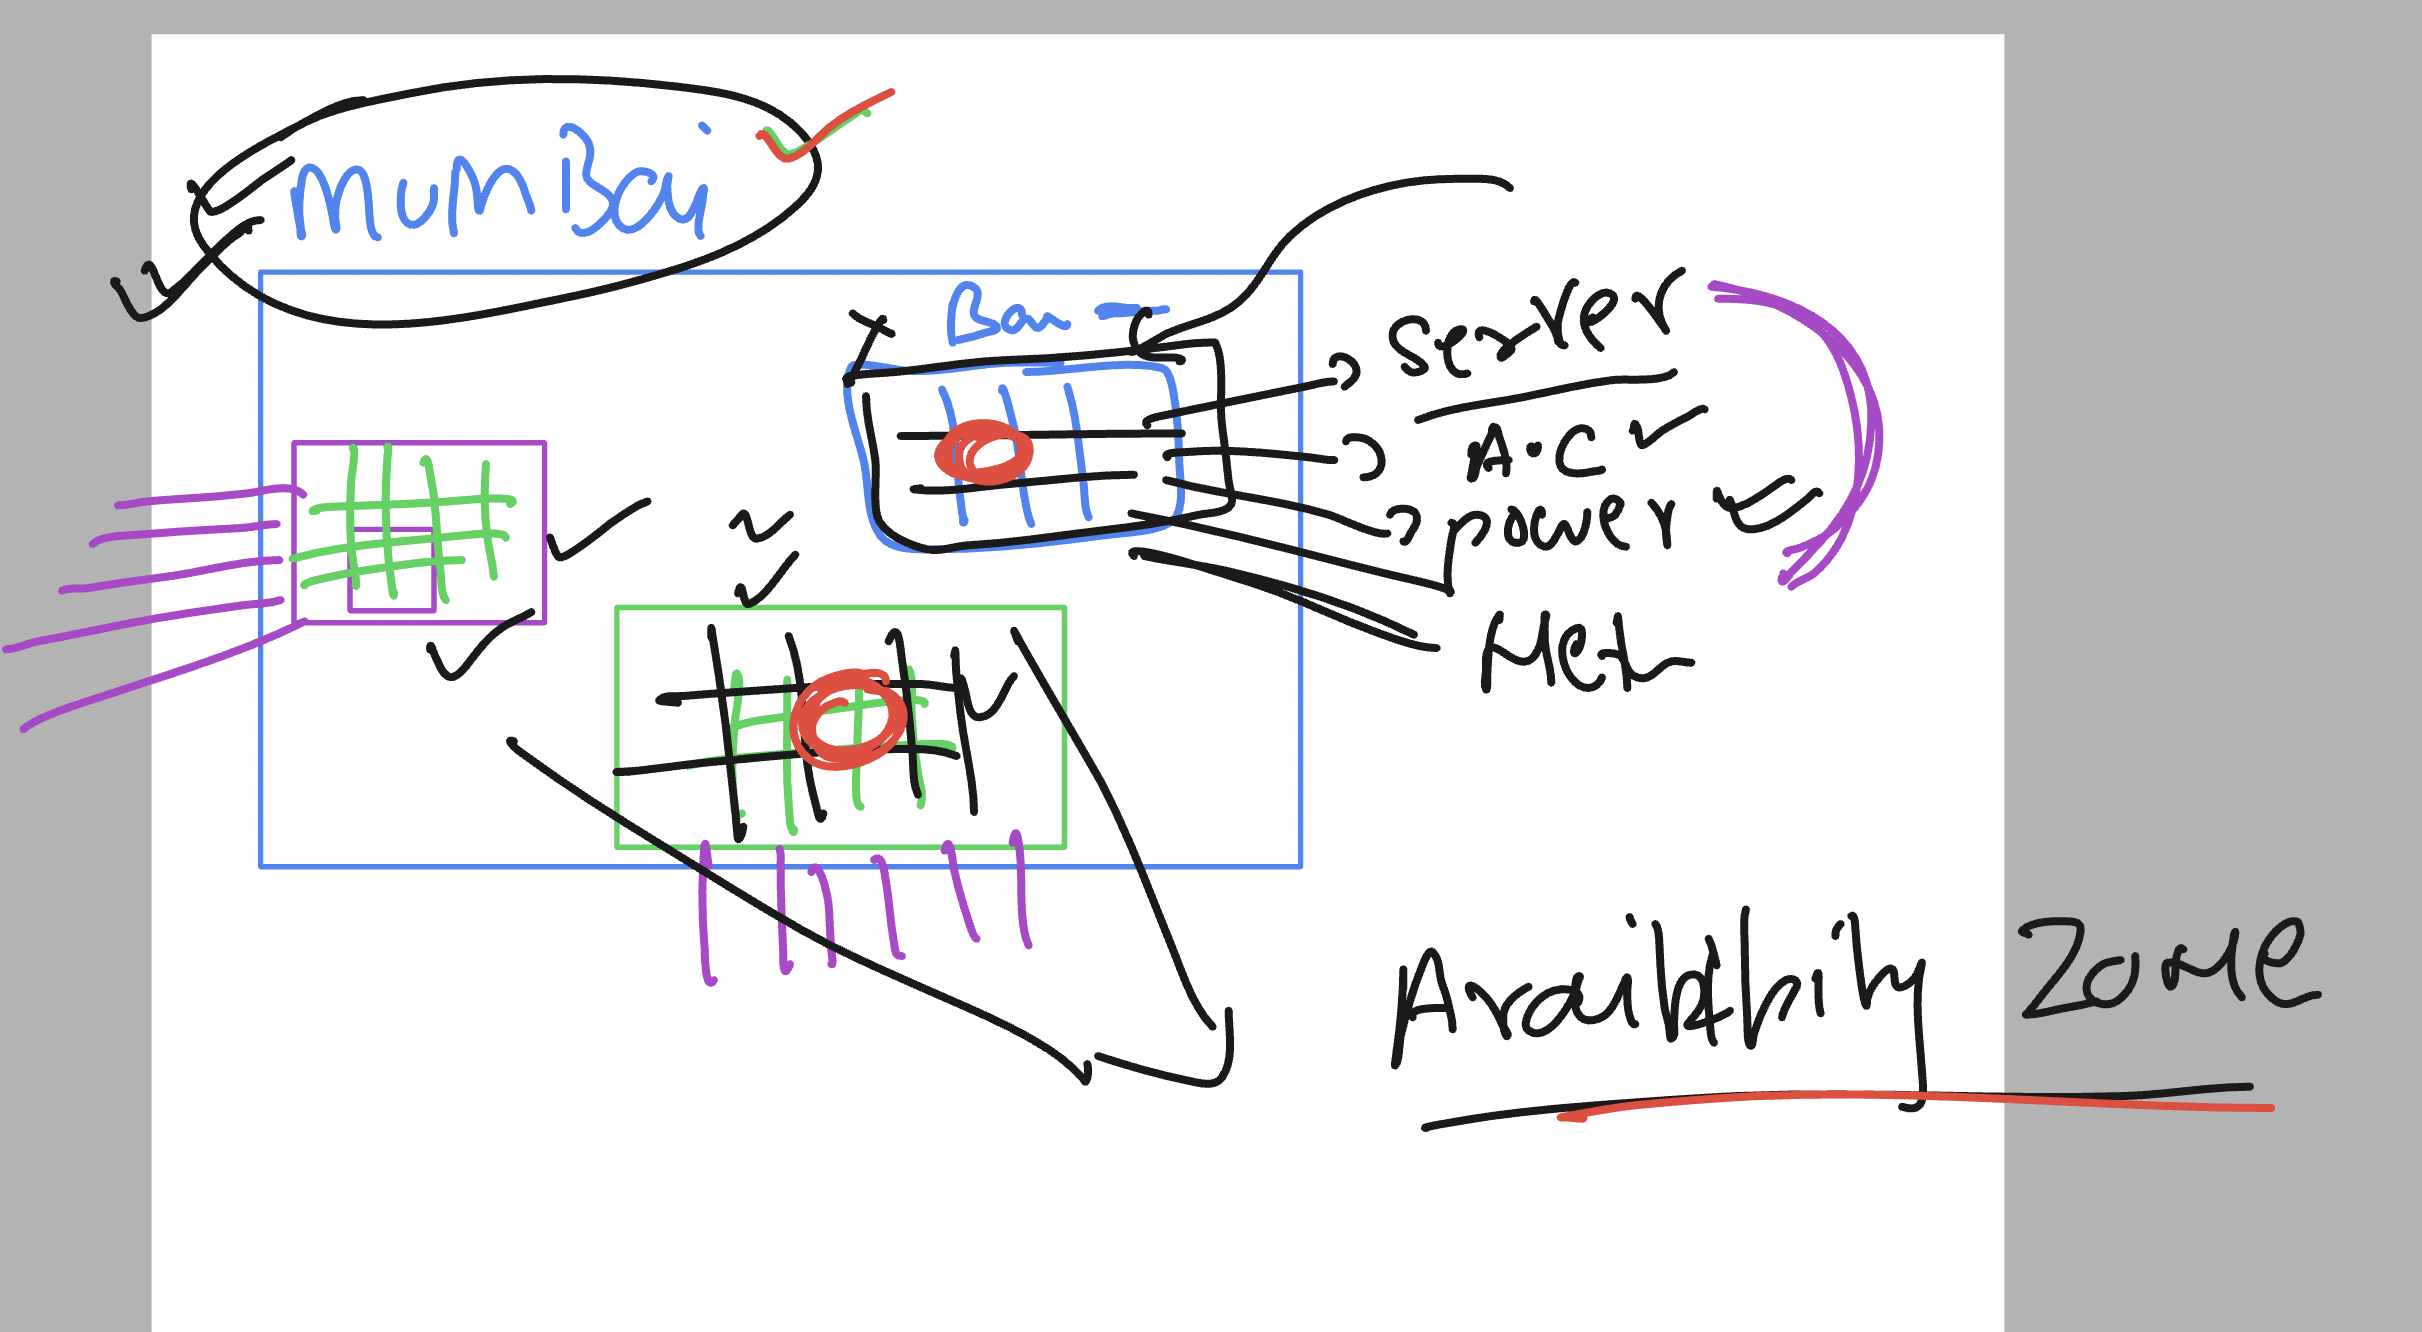 MUMBai
Ban
Server
A.C
power
Net
Availability Zone